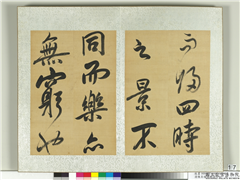 而歸四時
之景不
同而樂亦
無窮也
17